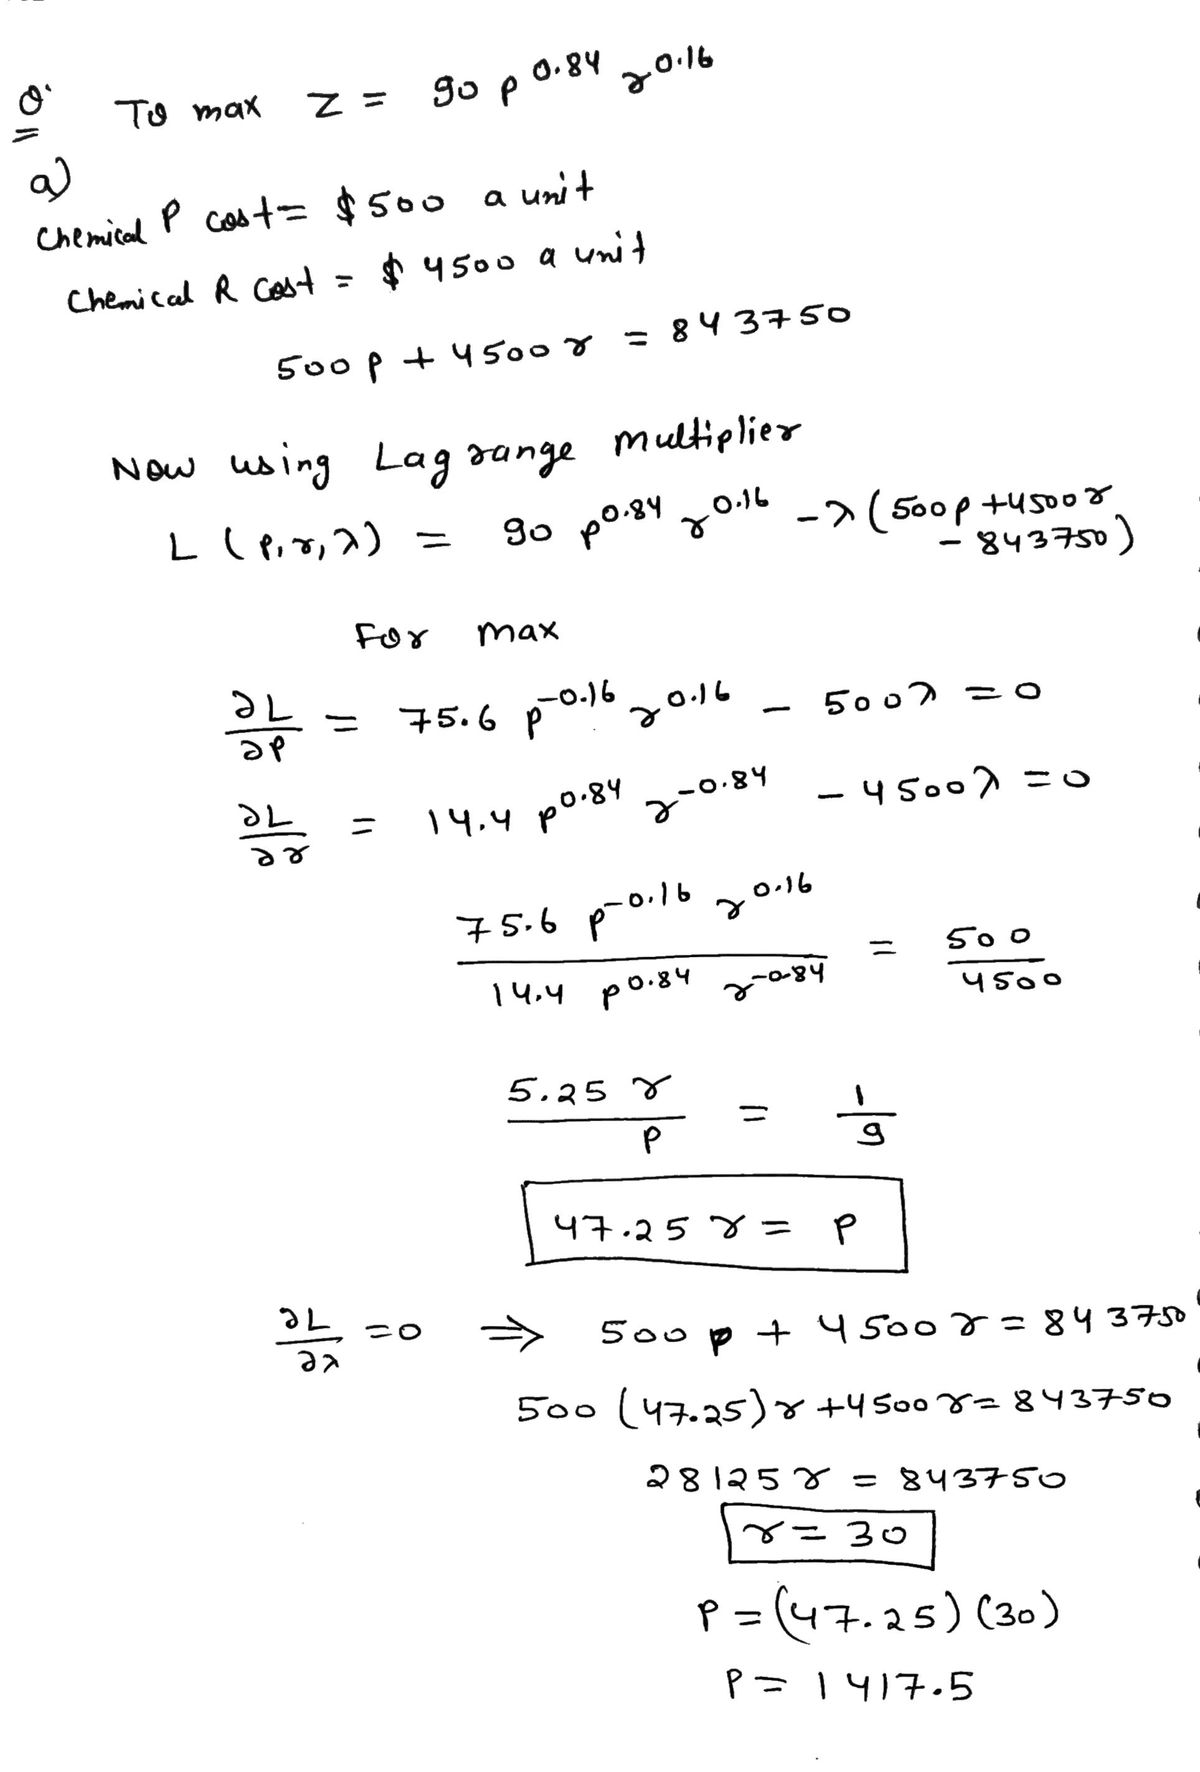 Q. To max Z = 90 p^0.84 r^0.16
a)
Chemical P cost = $500 a unit
Chemical R Cost = $ 4500 a unit
500 p + 4500 r = 843750
Now using Lagrange multiplier
L (p, r, λ) = 90 p^0.84 r^0.16 - λ (500p + 4500 r
- 843750)
For max
∂L/∂P = 75.6 p^-0.16 r^0.16 - 500 λ = 0
∂L/∂r = 14.4 p^0.84 r^-0.84 - 4500 λ = 0
75.6 p^-0.16 r^0.16 / 14.4 p^0.84 r^-0.84 = 500/4500
5.25 r / P = 1/9
47.25 r = P
∂L/∂λ = 0 ⇒ 500 p + 4500 r = 843750
500 (47.25) r + 4500 r = 843750
28125 r = 843750
r = 30
P = (47.25) (30)
P = 1417.5